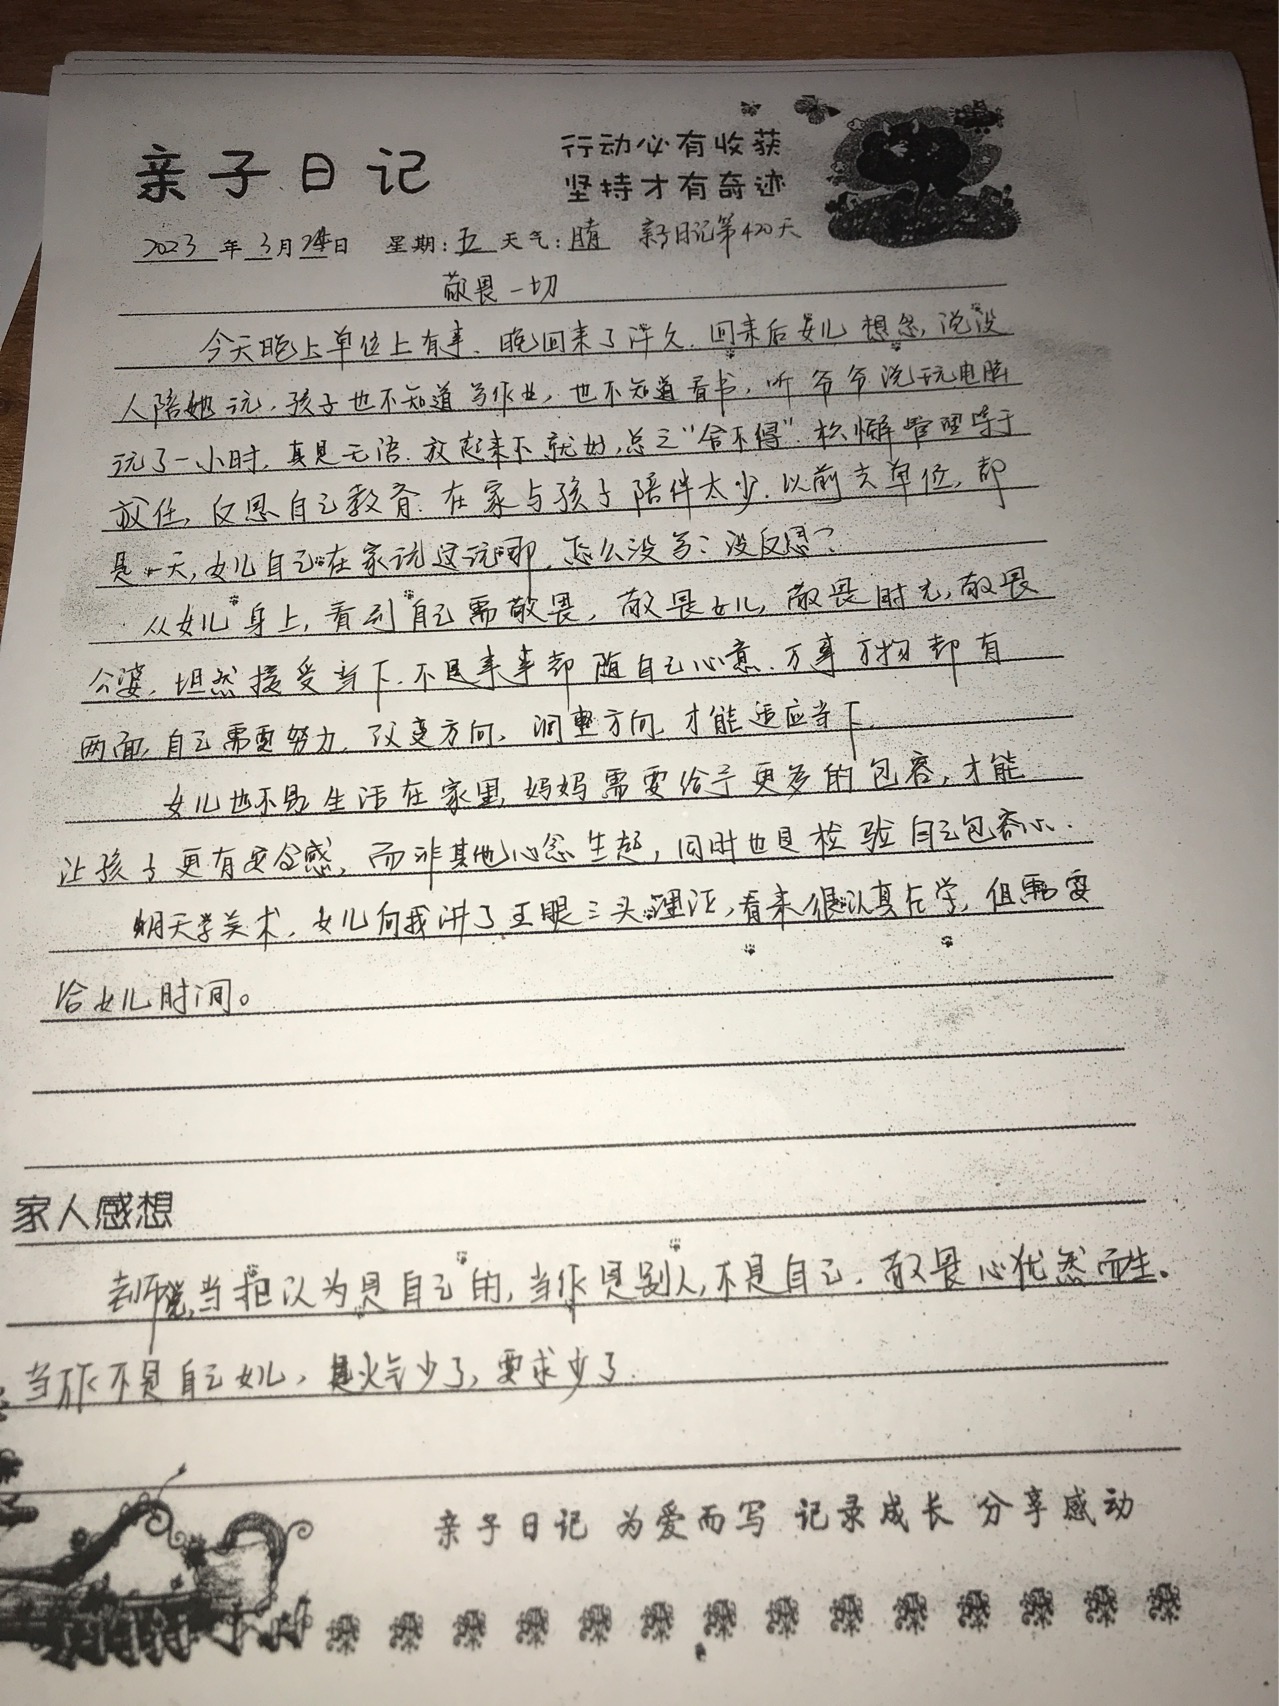 亲子日记
行动必有收获
坚持才有奇迹
2023年3月24日 星期:五 天气:晴 亲子日记第420天
敬畏一切
今天晚上单位上有事、晚回来了许久.回来后女儿想怨,说没
人陪她玩,孩子也不知道写作业,也不知道看书,听爷爷说玩电脑
玩了一小时,真是无语.放起来不就好,总之"舍不得".松懈管理等于
放任,反思自己教育.在家与孩子陪伴太少.以前去单位,都
是一天,女儿自己在家玩这玩那.怎么没写?没反思?
从女儿身上,看到自己需敬畏,敬畏女儿,敬畏时光,敬畏
公婆.坦然接受当下.不是事事都随自己心意.万事万物都有
两面,自己需要努力.改变方向、调整方向,才能适应当下.
女儿也不易生活在家里,妈妈需要给予更多的包容,才能
让孩子更有安全感,而非其他心念生起,同时也是检验自己包容心.
明天学美术,女儿向我讲了三眼三头理论,看来很认真在学,但需要
给女儿时间。
家人感想
老师说,当把认为是自己的,当作是别人,不是自己.敬畏心犹然而生。
当作不是自己女儿,是火气少了,要求少了.
亲子日记 为爱而写 记录成长 分享感动